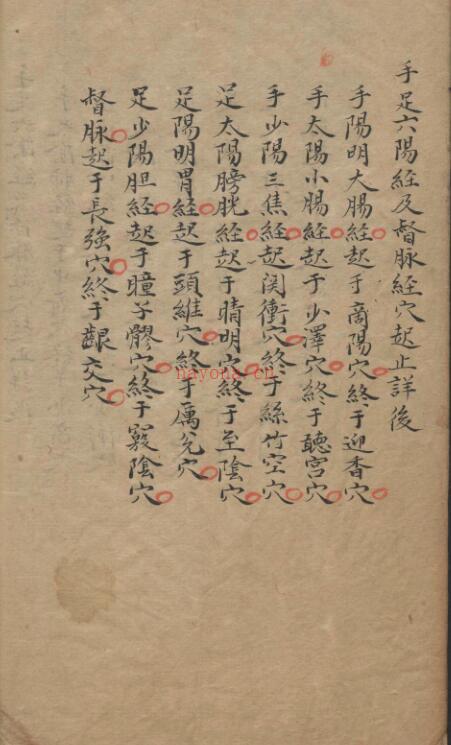 手足六陽経及督脉経穴起止詳後
手陽明大腸経起于商陽穴終于迎香穴
手太陽小腸経起于少澤穴終于聴宮穴
手少陽三焦経起関衝穴終于絲竹空穴
足太陽膀胱経起于晴明穴終于至陰穴
足陽明胃経起于頭維穴終于厲兌穴
足少陽胆経起于瞳子髎穴終于竅陰穴
督脉起于長強穴終于齦交穴
nayona.cn